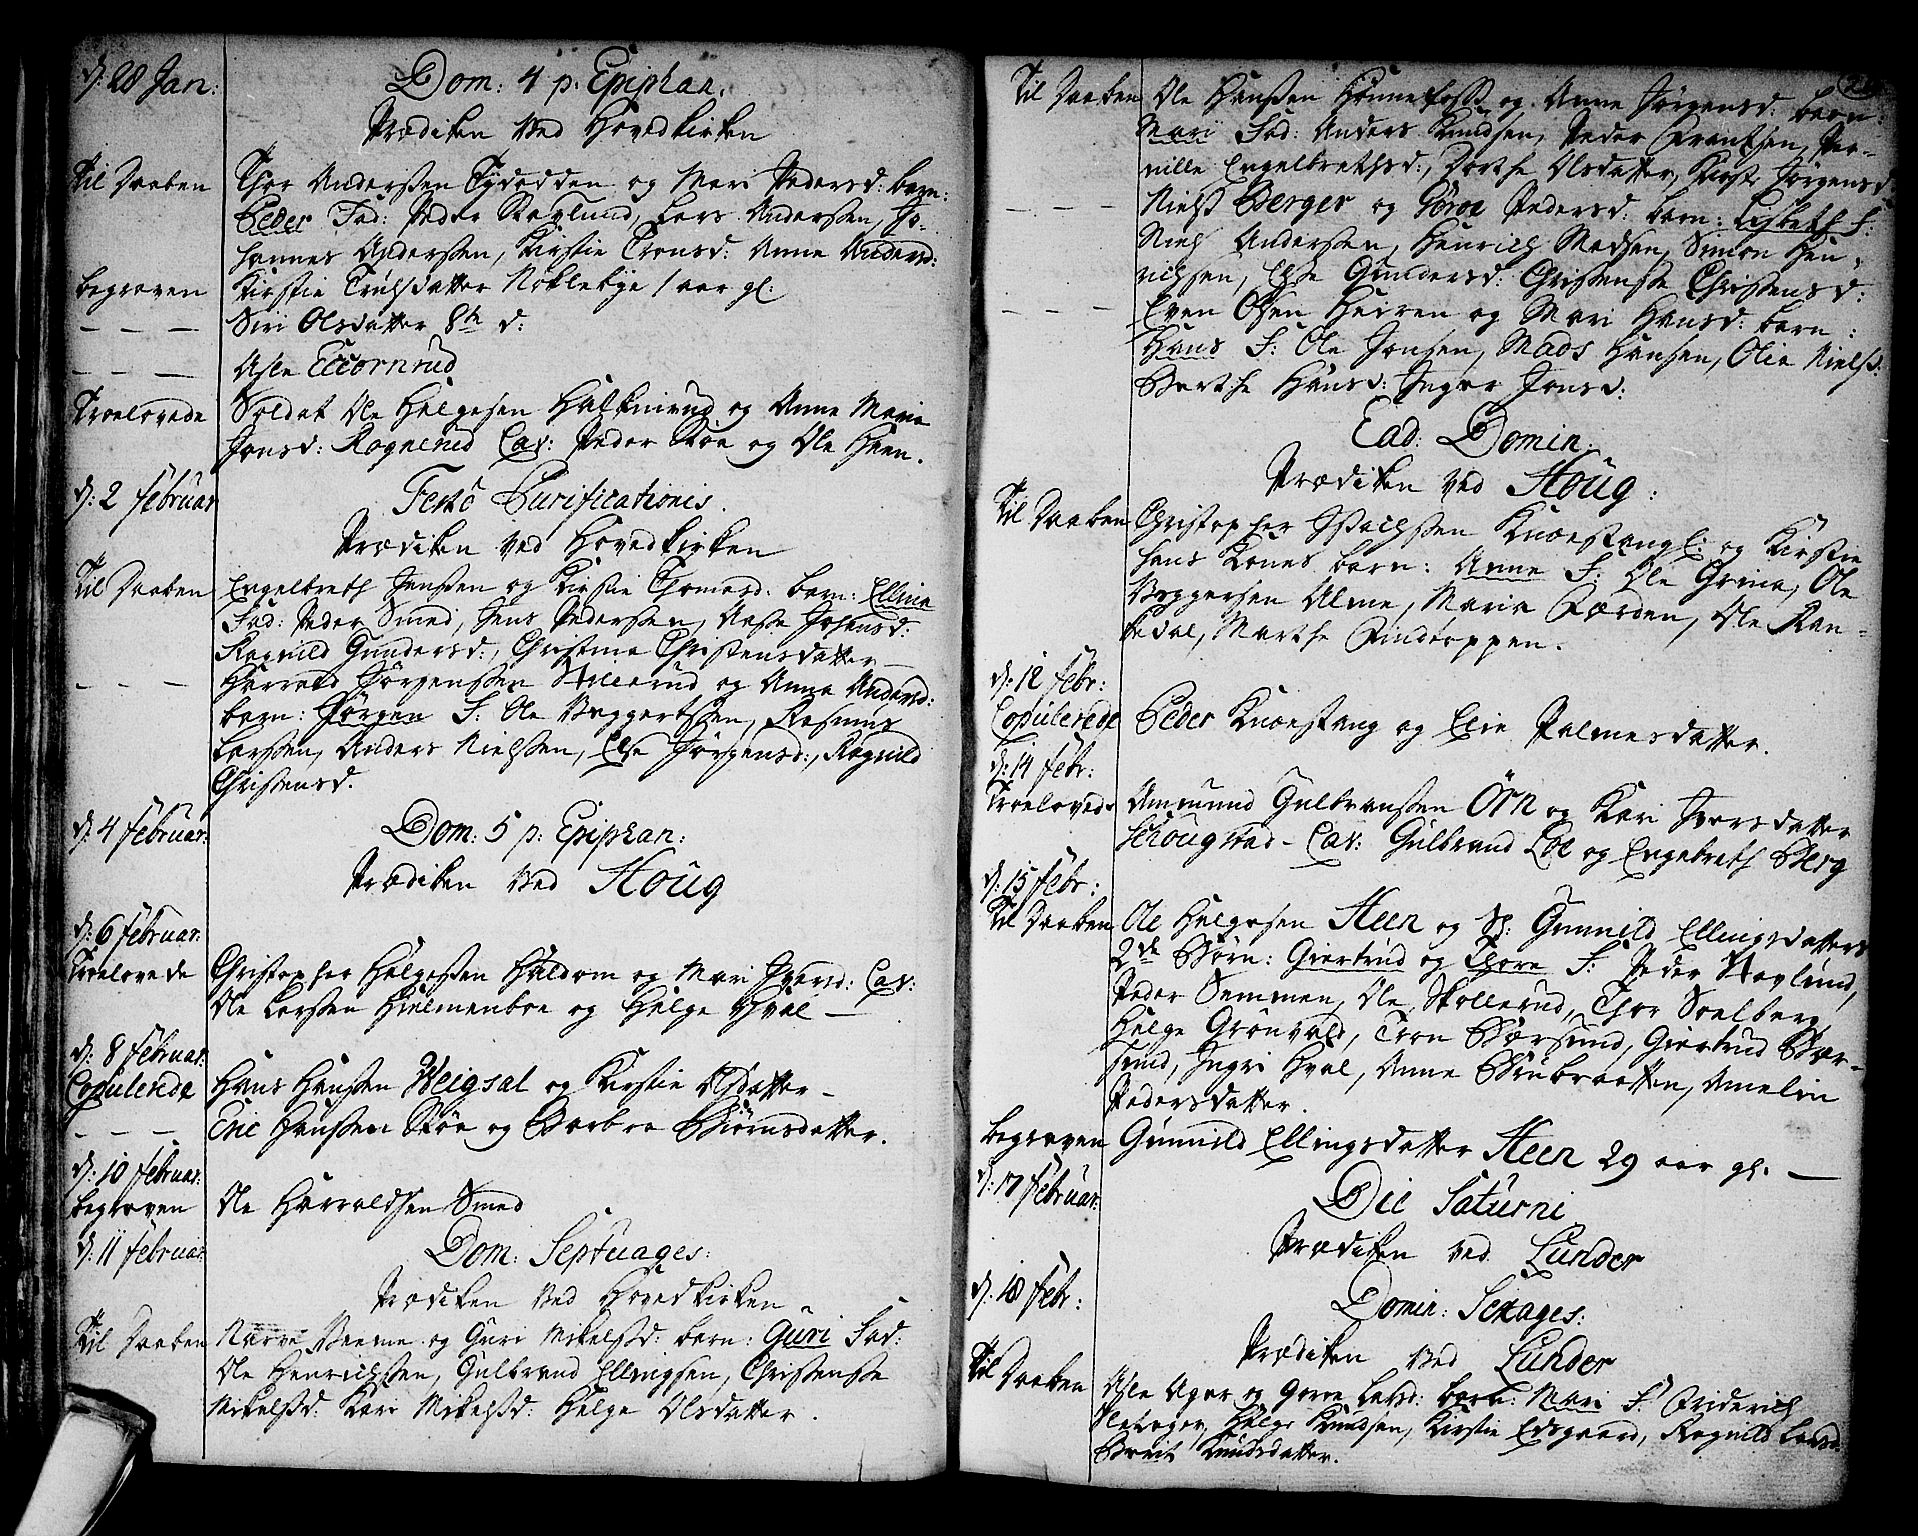 d: 28 Jan:
Dom: 4 p: Epiphan:
Prædiken ved Hovedkirken
Til Daaben
Thor Anderssen Tydodden og Mari Pedersd: barn:
Peder Fad: Peder Haglund, Lars Andersen, Jo-
hannes Anderssen, Kirstie Tronsd: Anne Andersd:
begraven
Kirstie Trulsdatter Noklebye 1 aar gl:
— — —
Siri Olsdatter 8th d:
— — —
Asle Eccornrud
Troelovede
Soldat Ole Helgesen Halknirud og Anne Marie
Jonsd: Rognerud Cav: Peder Skøe og Ole Heen.
d: 2 februar
Festo Purificationis.
Prædiken ved Hovedkirken
Til Daaben
Engelbreth Jenssen og Kirstie Thomesd: barn: Elline
Fad: Peder Smed, Jens Pederssen, Aase Johansd:
Ragnild Gundersd:, Christine Christensdatter —
— — —
Harrald Jørgenssen Hallerud og Anne Andersd:
barn: Jørgen F: Ole Byggertssen, Rasmus
Larssen, Anders Nielssen, Else Jørgensd:, Ragnild
Christensd.
d: 4 februar:
Dom: 5 p: Epiphan:
Prædiken ved Houg
d: 6 februar:
Troelovede
Christopher Helgessen Haldom og Mari Iversd: Cav:
Ole Larssen Hielmenboe og Helge Hval —
d: 8 februar:
Copulerede
Hans Hanssen Veigsal og Kirstie Olsdatter —
— — —
Eric Hanssen Skøe og Barbro Biørnsdatter.
d: 10 februar:
begraven
Ole Harraldsen Smed
d: 11 februar:
Dom: Septuages:
Prædiken ved Hovedkirken
Til Daaben
Narve Veeme og Guri Mikelsd: barn: Guri Fad:
Ole Henrichssen, Gulbrand Ellingsen, Christense
Mikelsd: Kari Mikelsd: Helge Olsdatter.
Til Daaben
Ole Hanssen Hønnefoss og Anne Jørgensd: barn:
Mari Fad: Anders Knudsen, Peder Frantsen, Per-
nille Engelbrethsd:, Dorthe Olsdatter, Kirsti Jørgensd
— — —
Niels Berger og Gøroe Pedersd: barn: Lisbeth F:
Niels Anderssen, Henrich Madsen, Simon Hen-
richsen, Else Gundersd: Christense Christensd:
— — —
Even Olsen Heiren og Mari Hansd: barn:
Hans F: Ole Jonsen, Mads Hansen, Olia Nielsd.
Berthe Hansd: Inger Jonsd:
Ead: Domin:
Prædiken ved Houg:
Til Daaben
Christopher Isachssen Knoestangl: og Kirstie
hans Kones barn: Anne F: Ole Grina, Ole
Byggersen Alme, Marie Færden, Ole Ran-
dedal, Marthe Findtoppen.
d: 12 febr:
Copulerede
Peder Knoestang og Elie Palmesdatter.
d: 14 febr:
Troelovede
Ammund Gulbranssen Ørn og Kari Iversdatter
Schougstad - Cav: Gulbrand Loe og Engebreth Berg
d: 15 febr:
Til Daaben
Ole Helgesen Heen og S: Gunnild Ellingsdatters
2de Børn: Giertrud og Thore F: Peder Haglund,
Peder Semmen, Ole Skollerud, Thor Soelberg
Helge Grønvold, Tron Børsund, Giertrud Bør-
sund, Ingri Hval, Anne Binbraatten, Amelin
Pedersdatter.
begraven
Gunnild Ellingsdatter Heen 29 aar gl. —
d: 17 februar:
Die Saturni
Prædiken ved Lunder
d: 18 febr:
Domin: Sexages:
Prædiken ved Lunder
Til Daaben
Asle Ager og Goroe Larsd: barn: Mari F: Friderich
Helge Knudsen, Kirstie Edsgaard, Ragnild Larsd
Berit Knudsdatter.